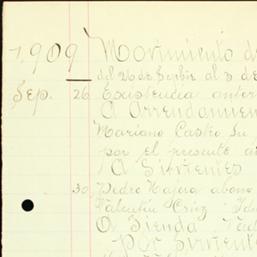 1,909 Movimiento de
del 26 de Septbre al 3 de
Sep. 26 Existencia anter
A Arrendamien
Mariano Castro Su
por el presente a
A Sirvientes
30 Pedro Najera abono
Valentin Cruz Id
A Tienda
Por Sirviente